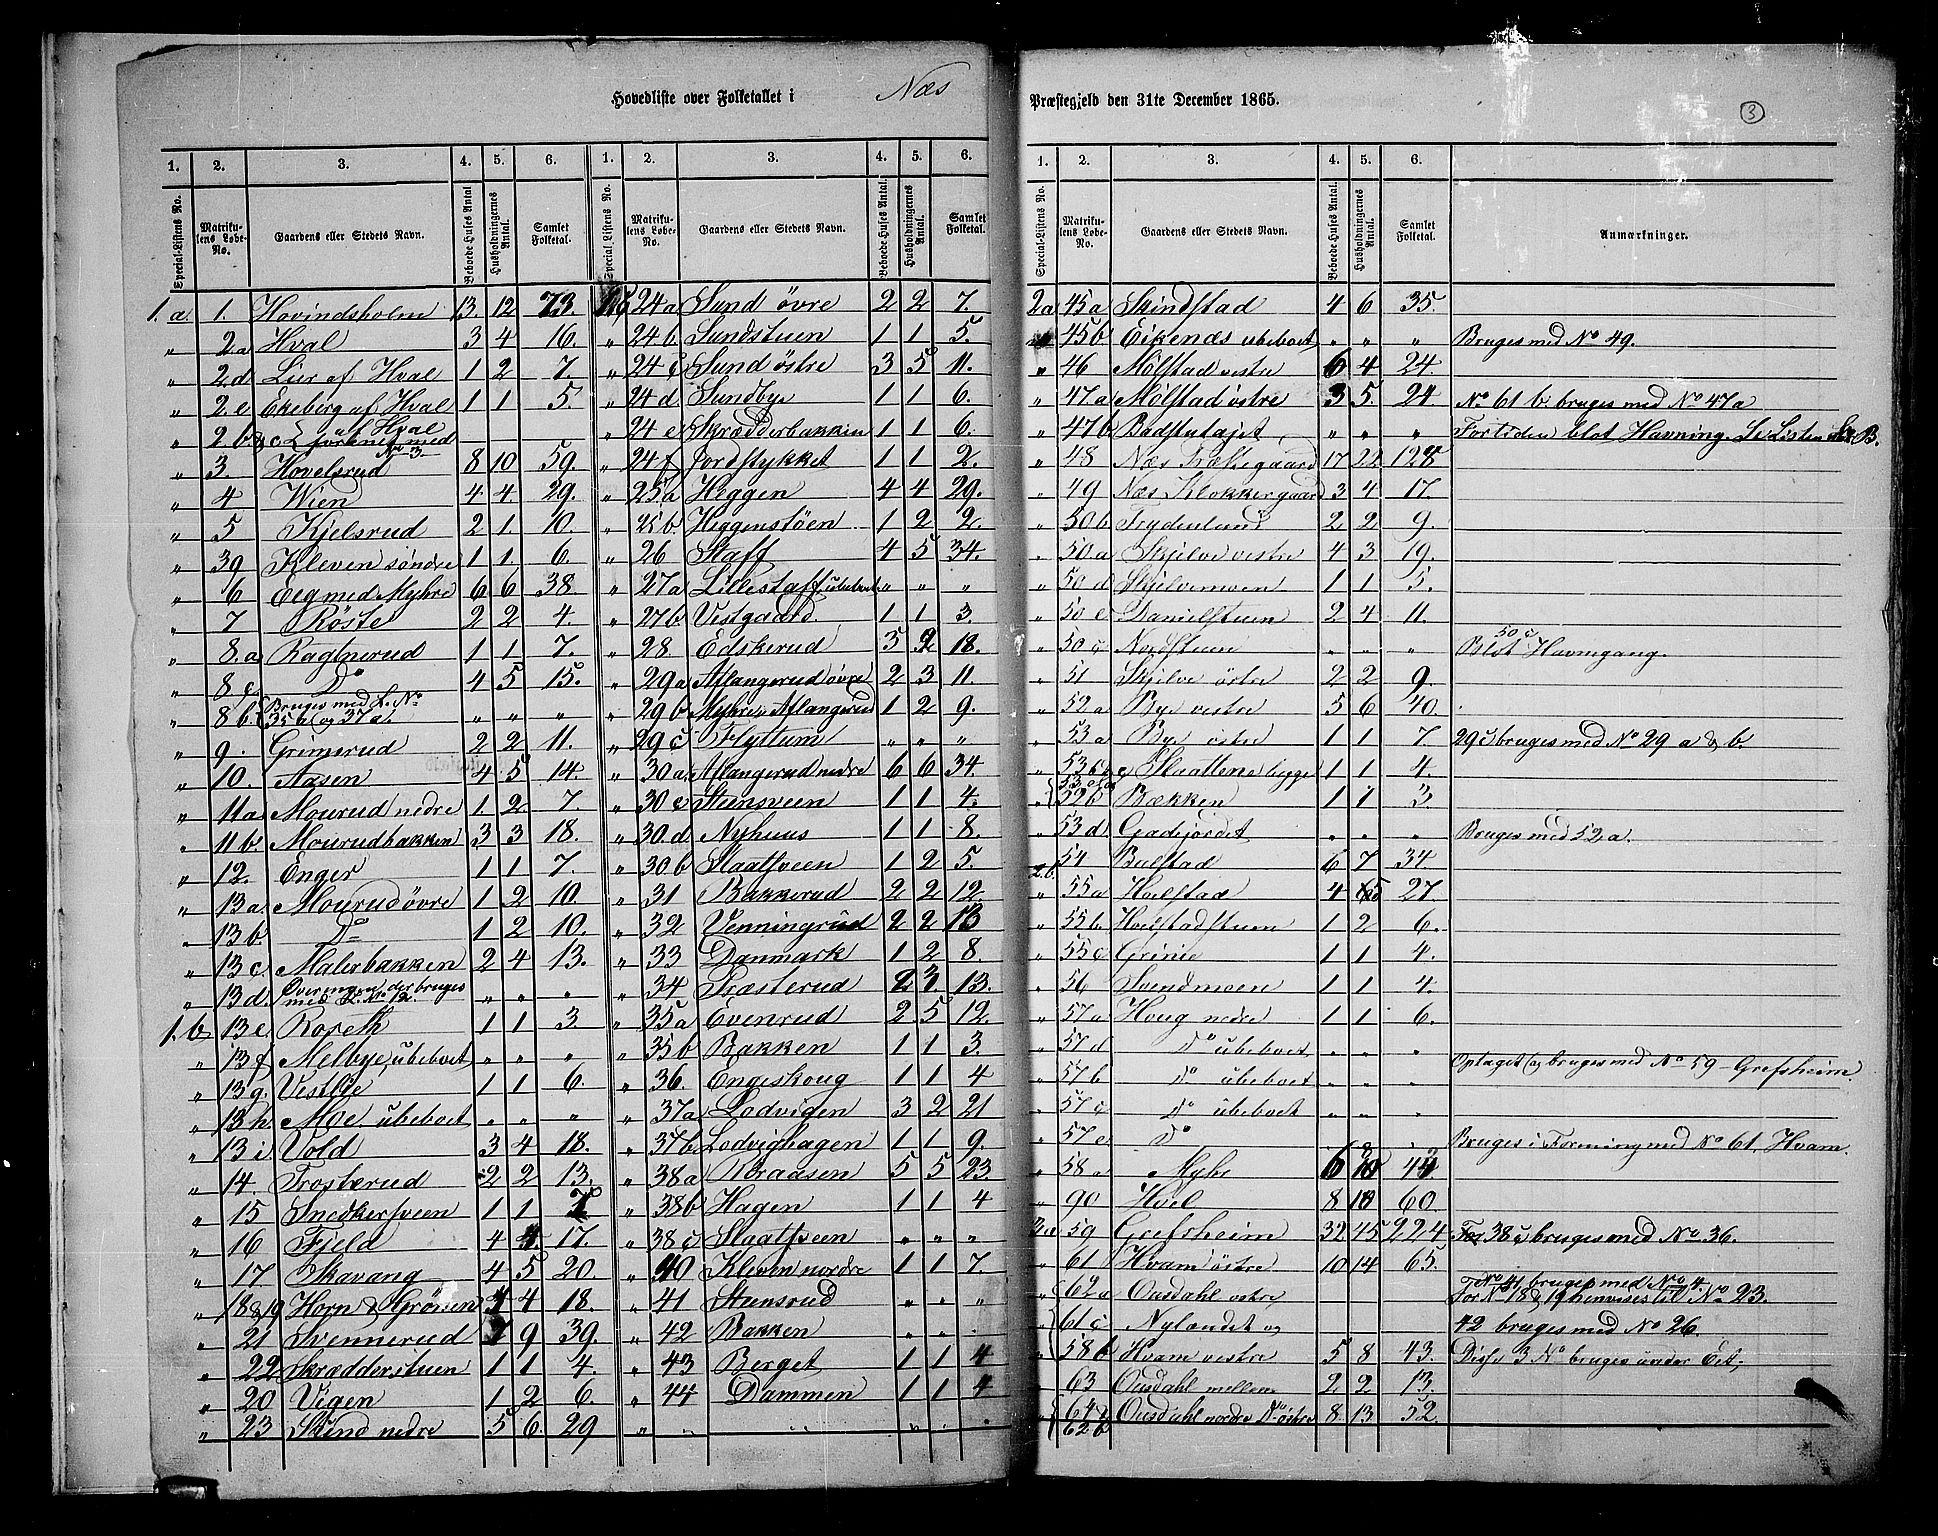 Hovedliste over Folketallet i Næs Præstegjeld den 31te December 1865.
3
1. 2. 3. 4. 5. 6.
Special-Listens No. Matrikulens Løbe-No. Gaardens eller Stedets Navn. Beboede Huses Antal Husholdningernes Antal. Samlet Folketal.
1. a. 1. Hovindsholm 13. 12 73.
„ 2.a Hval 3 4 16.
„ 2.d Lier af Hval 1 2 7
„ 2.e Ekeberg af Hval 1 1 5.
„ 2 b & c af Hval forenet med No 3.
„ 3 Hovelsrud 8 10 59.
„ 4 Wien 4 4 29.
„ 5 Kjelsrud 2 1. 10.
„ 39 Kleven søndre 1 1. 6.
„ 6 Eeg med Myhre 6 6 38.
„ 7 Røste 2 2 4.
„ 8.a Ragnerud 1 1 7.
„ 8 c Do 4 5 15.
„ 8 b Bruges med L. No 35 b og 37 a. „ „ „
„ 9. Grimsrud 2 2 11.
„ 10. Aasen 4 5 14.
„ 11a Mourud nedre 1. 2 7.
„ 11b. Mourudbakken 3 3 18.
„ 12. Enger 1 1 7.
„ 13a. Mourud øvre 1 2 10.
„ 13 b Do 1 2 10.
„ 13 c. Malerbakken 2 4 13.
„ 13 d. der bruges med L. No 12. „ „ „
1. b 13 e Roreth 1 1 3.
„ 13 f Melbye, ubeboet „ „ „
„ 13 g. Vestlie 1 1 6.
„ 13 h Moe ubeboet „ „ „
„ 13 i Vold 3 4 18.
„ 14 Trosterud 2 2 13.
„ 15 Snedkersveen 1 1
„ 16 Fjeld 4 4 17.
„ 17 Skavang 4 5 20.
„ 18&19 Horn & Grønen 4 4 18.
„ 21 Svennerud 7 9 39.
„ 22 Skrædderstuen 1 1 4.
„ 20 Vigen 1 2 6.
„ 23 Sund nedre 5 6. 29
1. 2. 3. 4. 5. 6.
Special Listens No. Matrikulens Løbe-No. Gaardens eller Stedets Navn. Beboede Huses Antal. Husholdningernes Antal. Samlet Folketal.
1 b 24a Sund øvre 2 2 7.
„ 24 b Sundstuen 1 1 5.
„ 24 c Sund østre 3 5 11.
„ 24 d Sundbye 1 1 6.
„ 24 e Skrædderbakken 1 1 6.
„ 24 f Jordstykket 1 1 2.
„ 25a Heggen 4 4 29.
„ 25 b. Heggenstøen 1 2 2.
„ 26 Staff 4 5 34.
„ 27 a Lillestaff, ubeboet „ „ „
„ 27 b Vestgaard. 1 1 3.
„ 28. Edskerud 3 2 18.
„ 29 a Aflangerud øvre 2 3 11.
„ 29 b Myhre, Aflangerud 1 2 9.
„ 29 c Flyttum „ „ „
„ 30 a Aflangerud nedre 6 6 34.
„ 30 c Steensveen 1 1 4.
„ 30.d Nyhuus 1 1 8.
„ 30 b Slaatsveen 1 2 5.
„ 31 Bakkerud 2 2 12.
„ 32 Venningrud 2 2 13
„ 33 Danmark 1 2 8.
„ 34 Præsterud 2 3. 13.
„ 35 a Evenrud 2 5 12.
„ 35 b Bakken 1 1 3.
„ 36. Engeskoug 1 1 4
„ 37a Lodvigen 3 2 21
„ 37b Lodvighagen 1 1 9.
„ 38 a Braasen 5 5 23.
„ 38b Hagen 1 1 4
„ 38 c Slaatsveen „ „ „
„ 40 Kleven nordre 1 1 7.
„ 41 Steensrud „ „ „
„ 42 Bakken „ „ „
„ 43 Berget 1 1 4
„ 44 Dammen 1 1 4
1. 2. 3. 4. 5. 6.
Special-Listens No. Matrikulens Løbe-No. Gaardens eller Stedets Navn. Beboede Huses Antal. Husholdningernes Antal. Samlet Folketal. Anmærkninger.
2a 45a Skindstad 4 6 35.
45 b Eikenæs ubeboet „ „ „ Bruges med No 49.
„ 46 Mølstad vestre 6 4 24.
„ 47a Mølstad østre 3 5. 24. No 61 b. bruges med No 47a
„ 47b Badstutajet „ „ „ For tiden blot Havning. Se Listen Lit B.
„ 48 Næs Præstegaard 17 22 128
„ 49 Næs Klokkergaard 3 4 17.
„ 50b Frydenlund 2 2 9.
„ 50 a Skjelve vestre 4 3 19.
„ 50 d Skjelvemoen 1 1 5.
„ 50 e Danielstuen 2 4 11.
„ 50 c Nordstuen „ „ „ 50 c Blot Havnegang.
„ 51 Skjelve østre 2 2 9.
„ 52 a Bye vestre 5 6 40.
„ 53 a Bye østre 1 1 7. 29 c bruges med No 29 a & b.
„ 53 b & c Slaattene begge 1 1 4.
„ 52b Bækken 1 1 3
„ 53 d Gadejordet „ „ „ Bruges med 52 a.
54 Bulstad 6 7 34
2 b. 55a Hoelstad 4 5 27.
„ 55b Hoelstadstuen 1 2 6.
„ 55 c Grinie 1 1 4.
„ 56 Svendmoen 1 1 4.
„ 57 a Houg nedre 1 1 6.
„ 57 d Do ubeboet „ „ „
„ 57 b Do ubeboet „ „ „ Optaget og bruges med No 59 - Grefsheim.
„ 57 c Do ubeboet „ „ „
„ 57 e Do Bruges i Forening med No 61, Hvam.
„ 58 a Myhr 6 10
„ 90 Hoel 8 10 60.
3.a 59 Grefsheim 32 45 224 38 c bruges med No 36.
„ 61 Hvam østre 10 14 65. No 41 bruges med No 4.
„ 62 a Ousdahl vestre For No 18 & 19 henvises til No 23.
„ 61 c Nylandet og 42 bruges med No 26.
58 b Hvam vestre 5 8 43. Disse 3 No bruges under Eet.
„ 63 Ousdahl mellem 2 2 13.
64 & 62 b Ousdahl nordre & Do østre 8 13 52.